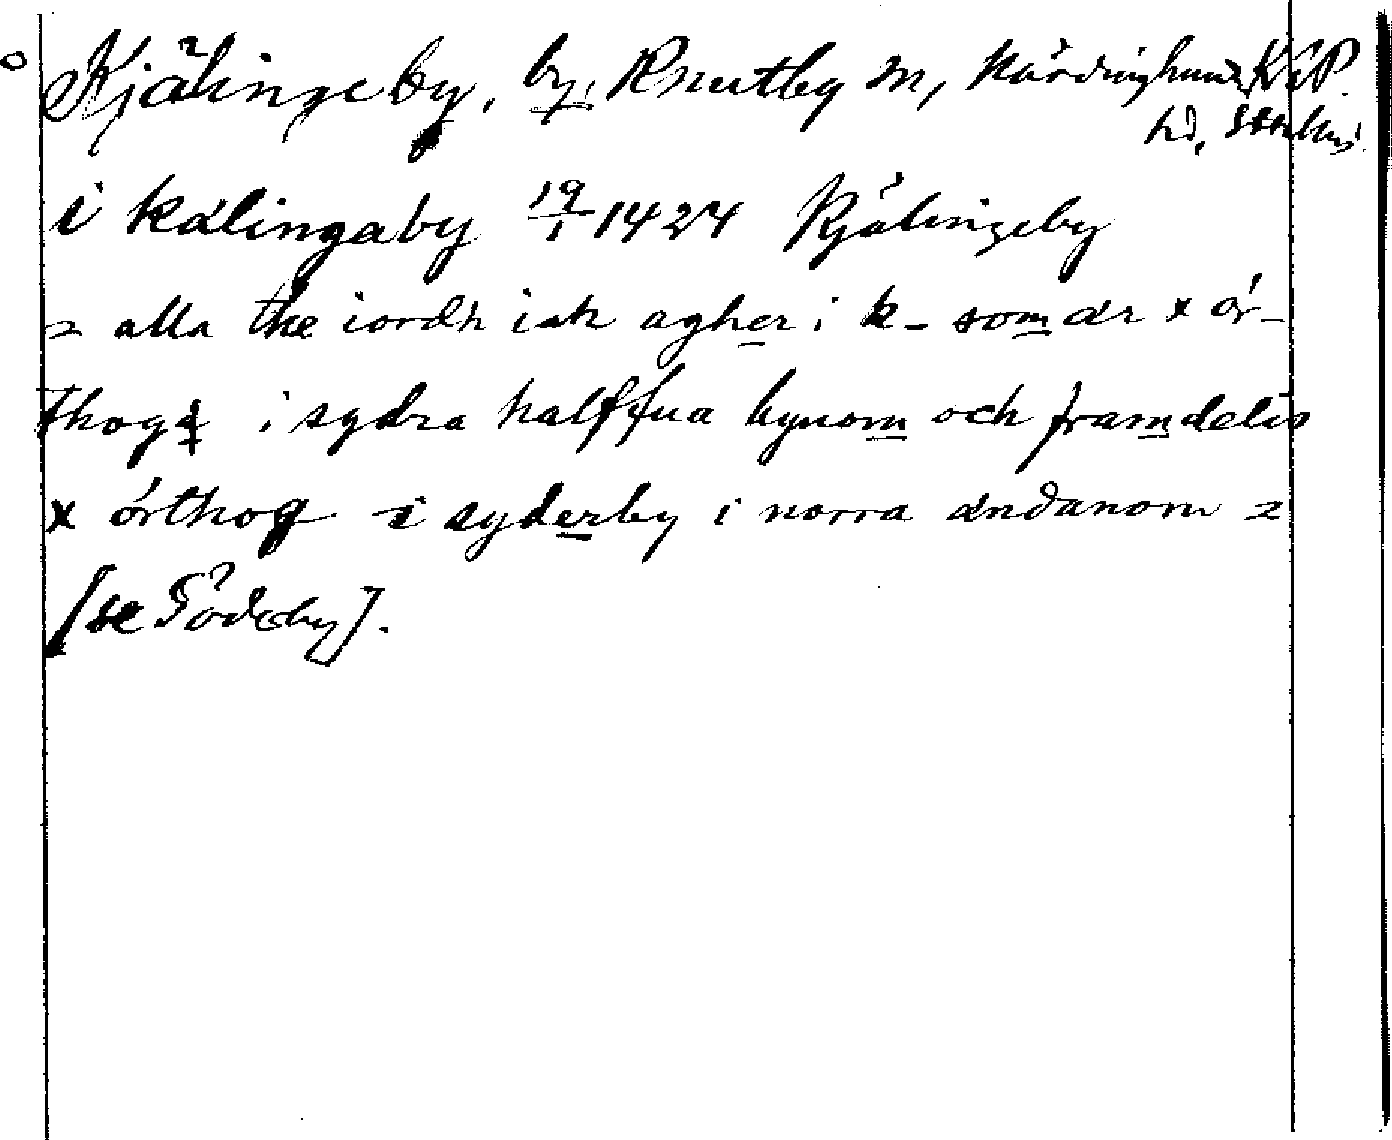 Kjälingeby, by, Knutby sn, Närdinghundra
hd, Sthlms
i kålingaby 19/1 1424 Kjälingeby
2 alla the iordh iak agher i k- som är x ör-
thogh i sydra halffua bynom och framdelis
x örthog i syderby i norra ändanom 2
[se Söderby].